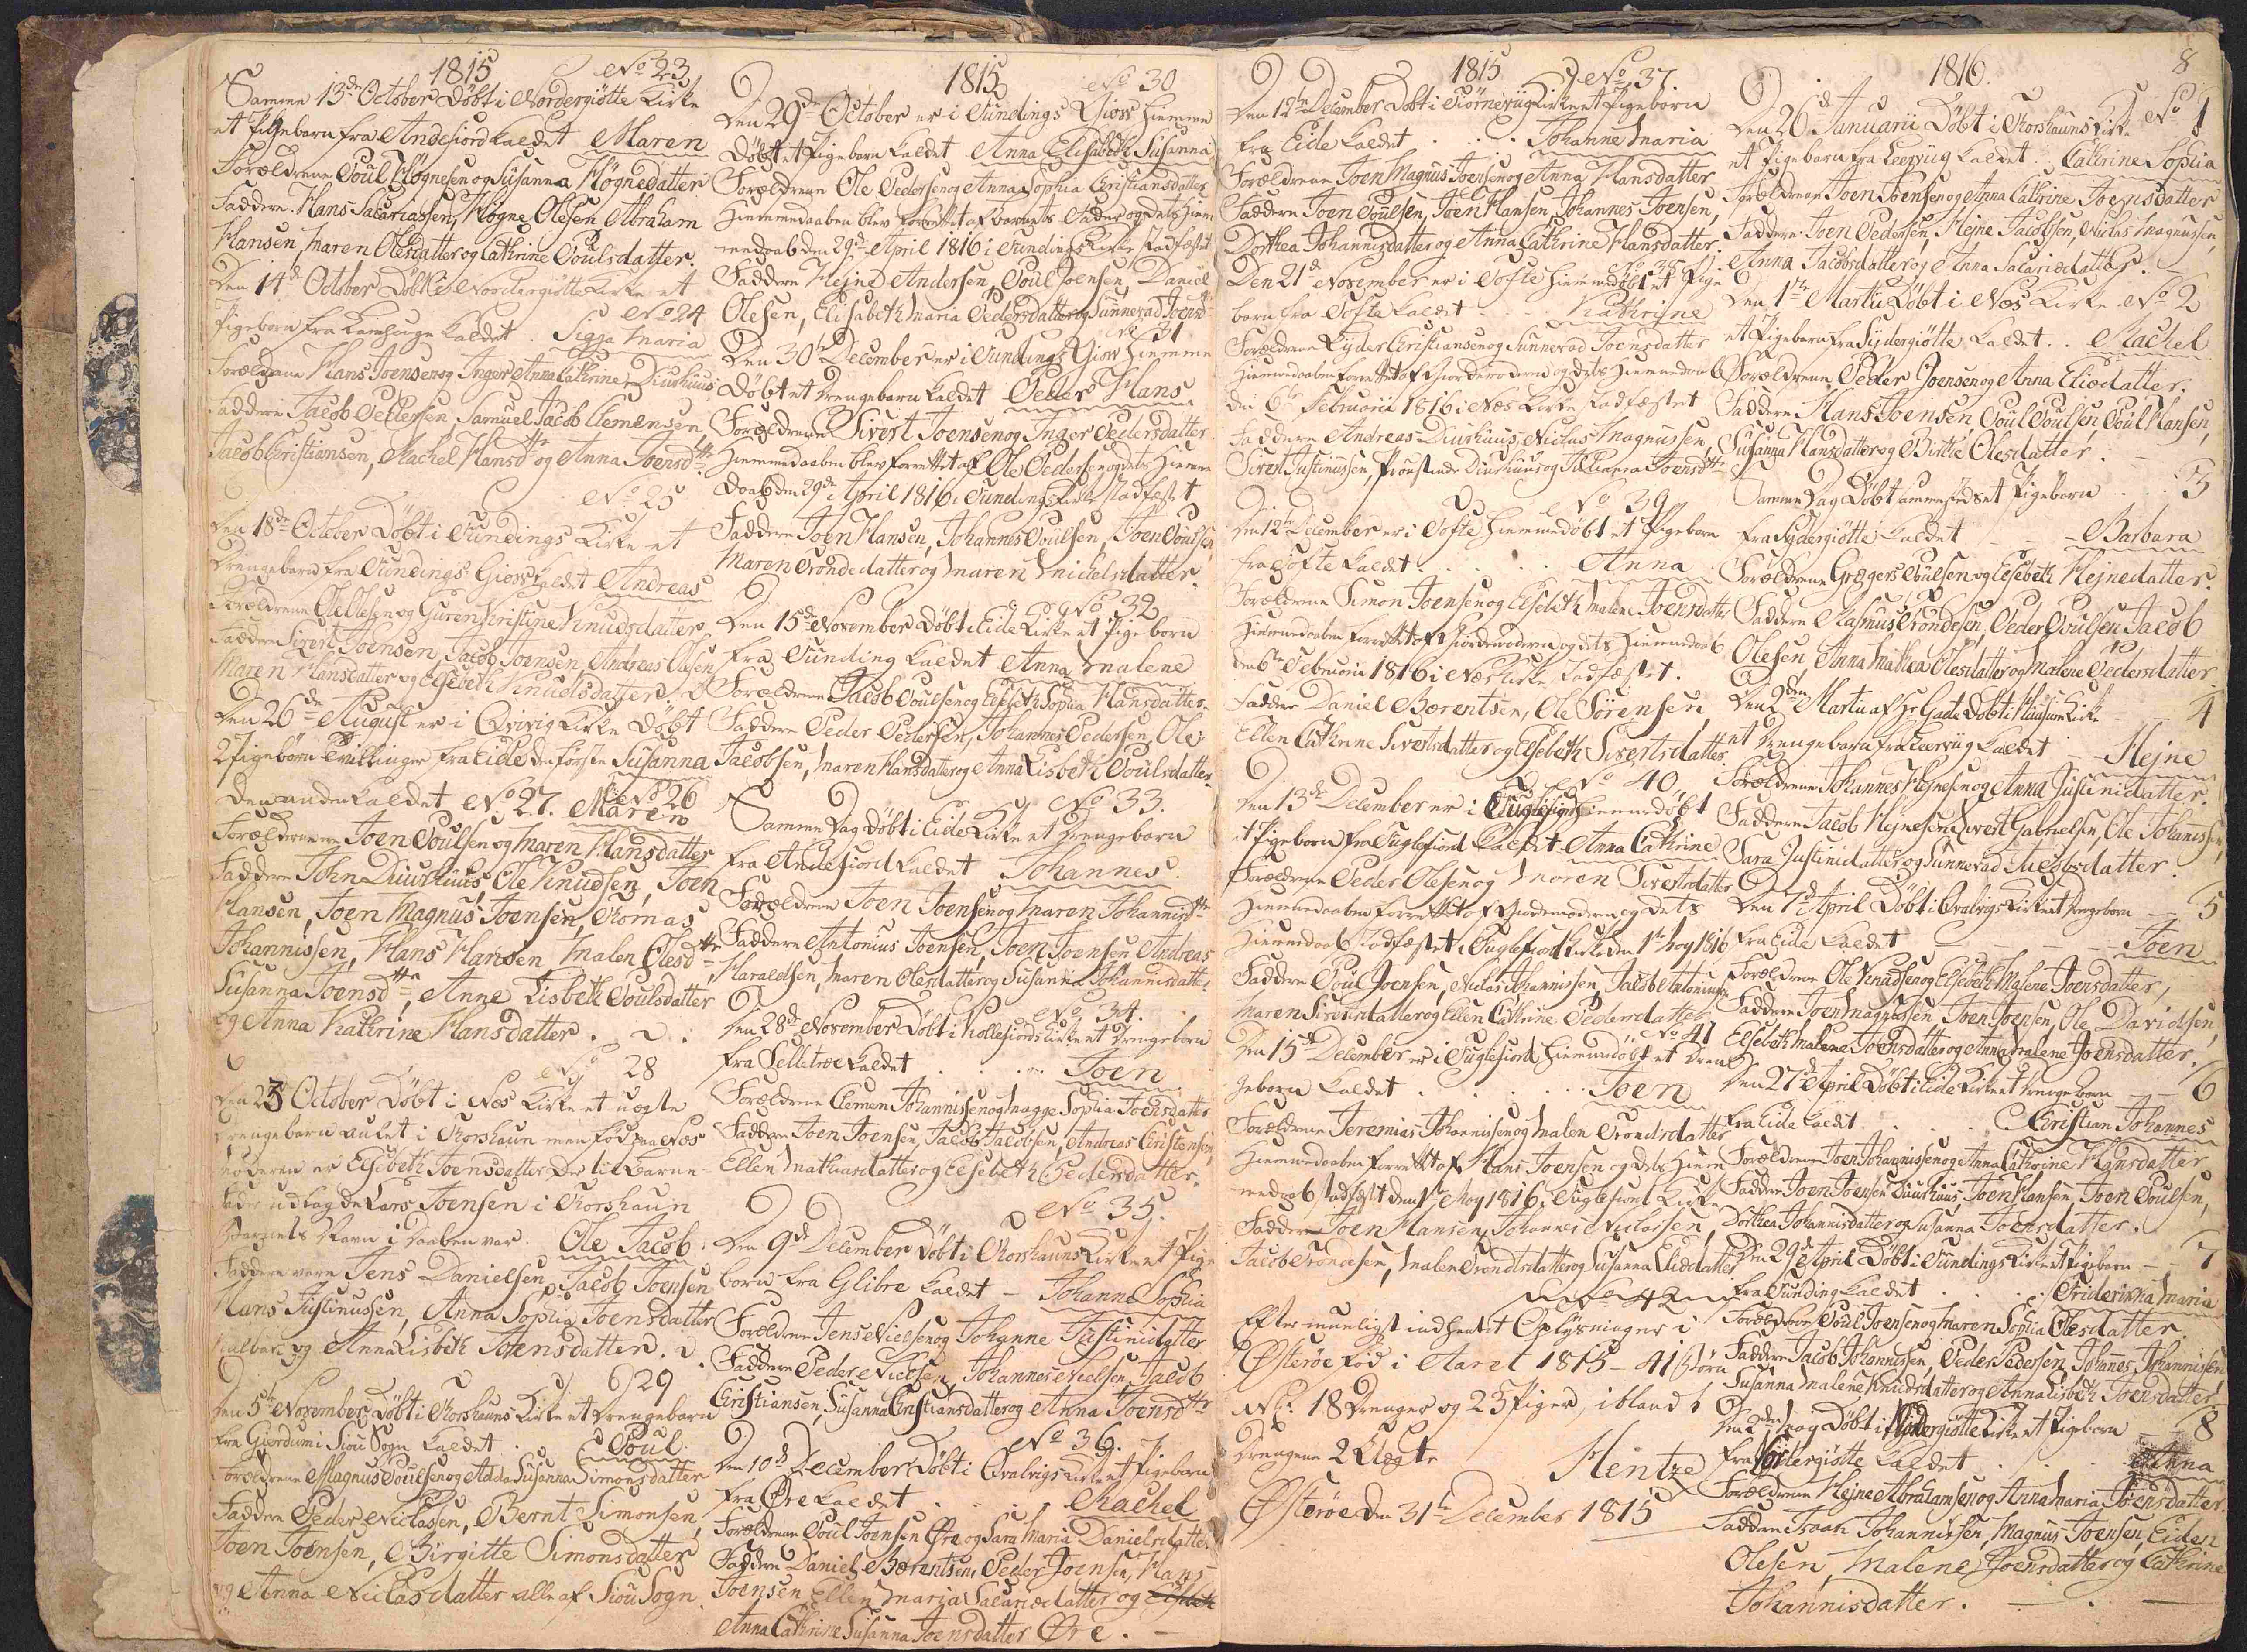 1815
No 23
Samme 13de October Döbt i Nordergiötte Kirke
et Pigebarn fra Andefiord kaldet Maren
Forældrene Poul Högnesen og Susanna Högnedatter
Faddere Hans Sacariassen, Högne Olesen Abraham
Hansen, Maren Olesdatter og Cathrine Poulsdatter.
Den 14de October Döbt i Nordergiötte Kirke et
No 24
Pigebarn fra kaldet Sigga Maria
Forældrene Hans Joensen og Inger Anna Cathrine Diurhuus
Faddere Jacob Pedersen Samuel Jacob Clemensen
Jacob Christiansen, Rachel Hansdtr og Anna Joensdtr
No 25
Den 18de October Döbt i Fundings Kirke et
Drengebarn fra Fundings Giov kaldet Andreas
Forældrene Ole Olesen og Guren Kristine Knudsdatter
Faddere Sivert Joensen, Jacob Joensen, Andreas Olesen
Maren Hansdatter og Elsebeth Knudsdatter
Den 26de August er i Qvivig Kirke Döbt
2 Pigebörn Tvillinger fra Eide den förste Susanna
No 26
den anden kaldet No 27. Maren
Forældrene Joen Poulsen og Maren Hansdatter
Faddere John Diurhuus, Ole Knudsen, Joen
Hansen, Joen Magnus Joensen, Thomas
Johannissen, Hans Hansen Malen Olesdtr
Susanna Joensdtr, Anne Lisbeth Poulsdatter
og Anna Kathrine Hansdatter.
No 28
Den 23 October Döbt i Næs Kirke et uægte
Drengebarn avlet i Thorshaun men fød paa Næs
Moderen er Elsebeth Joensdatter til Barne-
fader udlagde Lars Joensen i Thorshaun
Barnets Navn i Daaben var Ole Jacob.
Faddere vare Jens Danielsen, Jacob Joensen
Hans Justinussen, Anna Sophia Joensdatter
og Anna Lisbeth Joensdatter.
29
Den 5te November Döbt i Thorshauns Kirke et Drengebarn
fra Gierdum i Siöu Sogn kaldet Poul
Forældrene Magnus Poulsen og Adda Susanna Simonsdatter
Faddere Peder Niclassen, Bernt Simonsen,
Joen Joensen, Birgitte Simonsdatter
og Anna Niclasdatter alle af Siöu Sogn.
1815
No 30
Den 29de October er i Fundings Giov Hiemme
Döbt et Pigebarn kaldet Anna Elisabeth Susanna
Forældrene Ole Pedersen og Anna Sophia Christiansdatter
Hiemmedaaben blev forrettet af Barnets Fader og dets Hiem-
medaab den 29de April 1816 i Fundings Kirke stadfæstet
Faddere Hejne Andersen, Poul Joensen, Daniel
Olesen, Elisabeth Maria Pedersdatter og Sunnevad Joensdtr
No 31
Den 30te December er i Fundings Giov Hiemme
Döbt et Drengebarn kaldet Peder Hans
Forældrene Sivert Joensen og Inger Pedersdatter
Hiemmedaaben blev forrettet af Ole Pedersen og dets Hiemme
Daab den 29de April 1816 i Fundings Kirke stadfæstet
Faddere Joen Hansen, Johannes Poulsen, Joen Poulsen
Maren Trondedatter og Maren Michelsdatter.
No 32
Den 15de November Döbt i Eide Kirke et Pigebarn
fra Funding kaldet Anna Malene
Forældrene Jacob Poulsen og Elsebeth Sophia Hansdatter.
Faddere Peder Pedersen, Johannes Pedersen, Ole
Jacobsen, Maren Hansdatter og Anna Lisbeth Poulsdatter.
No 33.
Samme Dag Döbt i Eide Kirke et Drengebarn
fra Andefiord kaldet Johannes.
Forældrene Joen Joensen og Maren Johannisdtr
Faddere Antonius Joensen, Joen Joensen Andreas
Haraldsen, Maren Olesdatter og Susanna Johannisdatter.
No 34.
Den 28de November Döbt i Kollefiords Kirke et Drengebarn
fra Selletræ kaldet Joen
Forældrene Clemen Johannissen og Magge Sophia Joensdatter
Faddere Joen Joensen, Jacob Jacobsen, Andreas Christensen
Ellen Mathiasdatter og Elsebeth Pedersdatter.
No 35.
Den 9de December Döbt i Thorshauns Kirke et Pige-
barn fra Glibre kaldet - Johanne Sophia
Forældrene Jens Nielsen og Johanne Justinidatter
Faddere Peder Nielsen, Johannes Nielsen, Jacob
Christiansen, Susanna Christiansdatter og Anna Joensdtr
No 36.
Den 10de December Döbt i Qvalvigs Kirke et Pigebarn
fra Öre kaldet Rachel
Forældrene Poul Joensen Öre og Sara Maria Danielsdatter
Faddere Daniel Bærentsen, Peder Joensen, Hans
Joensen Ellen Maria Sacarisdatter og
Anna Cathrine Susanna Joensdatter Öre.
1815
No 37.
Den 12te December Döbt i Tiörnevig Kirke et Pigebarn
fra Eide kaldet Johanne Maria
Forældrene Joen Magnus Joensen og Anna Hansdatter
Faddere Joen Poulsen, Joen Hansen, Johannes Joensen,
Dorthea Johannisdatter og Anna Cathrine Hansdatter.
No 38
Den 21de November er i Tofte Hiemmedöbt et Pige
barn fra Tofte kaldet Kathrine
Forældrene Eyder Christiansen og Sunnevad Joensdatter
Hiemmedaaben forrettet af Giordemoderen og dets Hiemmedaab
den 6te Februarii 1816 i Næs Kirke stadfæstet
Faddere Andreas Diurhuus, Niclas Magnussen,
Sivert Justinussen, Proustinde Diurhuus og Johanna Joensdtr
No 39
Den 12te December er i Tofte Hiemmedöbt et Pigebarn
fra Tofte kaldet Anna
Forældrene Simon Joensen og Elsebeth Malene Joensdatter
Hiemmedaaben forrettet af Giordemoderen og dets Hiemmedaab
den 6te Februarii 1816 i Næs Kirke stadfæstet.
Faddere Daniel Bærentsen, Ole Sörensen,
Ellen Cathrine Sivertsdatter og Elsebeth Sivertsdatter.
No 40
Den 13de December er i Fuglefiord Hiemmedöbt
et Pigebarn fra Fuglefiord kaldet Anna Cathrine
Forældrene Peder Olesen og Maren Sivertsdatter
Hiemmedaaben forrettet af Giordemoderen og dets
Hiemmedaab stadfæstet i Fuglefiord Kirke den 1te May 1816
Faddere Poul Joensen, Niclas Johannissen, Jacob Antonius
Maren Sivertsdatter og Ellen Cathrine Pedersdatter
No 41
Den 15de December er i Fuglefiord Hiemmedöbt et Dren-
gebarn kaldet Joen
Forældrene Jeremias Johannissen og Malen Trondsdatter
Hiemmedaaben forrettet af Hans Joensen og dets Hiem
medaab stadfæst den 1te May 1816 i Fuglefiord Kirke
Faddere Joen Hansen, Johannes Niclassen,
Jacob Trondesen, Malen Trondtsdatter og Susanna Elisdatter.
No 42
Efter mueligst indhentet Oplysninger i
Österöe föd i Aaret 1815 - 41 Börn
Nl: 18 Drenge og 23 Piger, iblandt
Drengene 2 Uægte
Hentze
Österöe den 31te December 1815
8
1816
Den 26de Januarii Döbt i Thorshauns Kirke No 1
et Pigebarn fra Leervig kaldet Cathrine Sophia
Forældrene Joen Joensen og Anna Cathrine Joensdatter
Faddere Joen Pedersen, Hejne Jacobsen, Niclas Magnussen,
Anna Jacobsdatter og Anna Sacarisdatter.
Den 1te Martii Döbt i Næs Kirke No 2
et Pigebarn fra Sydergiötte kaldet Rachel
Forældrene Peder Joensen og Anna Elisdatter.
Faddere Hans Joensen Poul Poulsen, Poul Hansen,
Susanna Hansdatter og Birthe Olesdatter.
Samme Dag Döbt ammesteds et Pigebarn 3
fra Sydergiötte kaldet Barbara
Forældrene Grægers Poulsen og Elsebeth Hejnedatter
Faddere Rasmus Trondesen, Peder Poulsen Jacob
Olesen, Anna Mathea Olesdatter og Malene Pedersdatter
Den 2den Martii af Hr Gade Döbt i Kirke 4
et Drengebarn fra Leervig kaldet Hejne
Forældrene Johannes Hejnesen og Anna Justinidatter.
Faddere Jacob Hejnesen, Sivert Gabrielsen, Ole Johanissen,
Sara Justinidatter og Sunnevad Jacobsdatter.
Den 7de April Döbt i Qvalvigs Kirke et Drengebarn 5
fra Eide kaldet Joen
Forældrene Ole Knudsen og Elsebeth Malene Joensdatter,
Faddere Joen Magnussen Joen Joensen, Ole Davidsen,
Elsebeth Malene Joensdatter og Anna Malene Joensdatter.
Den 27de April Döbt i Eide Kirke et Drengebarn 6
fra Eide kaldet Christian Johannes
Forældrene Joen Johannissen og Anna Cathrine Hansdatter
Faddere Joen Joensen Diurhuus, Joen Hansen, Joen Poulsen,
Dorthea Johannisdatter og Susanna Joensdatter.
Den 29de April Döbt i Fundings Kirke et Pigebarn - 7
fra Funding kaldet Friderikka Maria
Forældrene Poul Joensen og Maren Sophia Olesdatter.
Faddere Jacob Johannissen, Peder Pedersen, Johannes Johannissen,
Susanna Malene Knudsdatter og Anna Lisbeth Joensdatter.
Den 2den May Döbt i Nordergiötte Kirke et Pigebarn 8
fra Nordergiötte kaldet Anna
Forældrene Hejne Abrahamsen og Anna Maria Joensdatter.
Faddere Isaak Johannissen, Magnus Joensen, Eiden
Olesen, Malene Joensdatter og Cathrine
Johannisdatter.